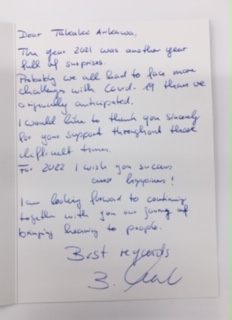 Dear Takako Arikawa,
The year 2021 was another year
full of surprises.
Probably we all had to face more
challenges with Covid-19 than we
originally anticipated.
I would like to thank you sincerely
for your support throughout these
difficult times.
For 2022 I wish you success
and happiness!
I am looking forward to continuing
together with you our journey of
bringing hearing to people.
Best regards
B.